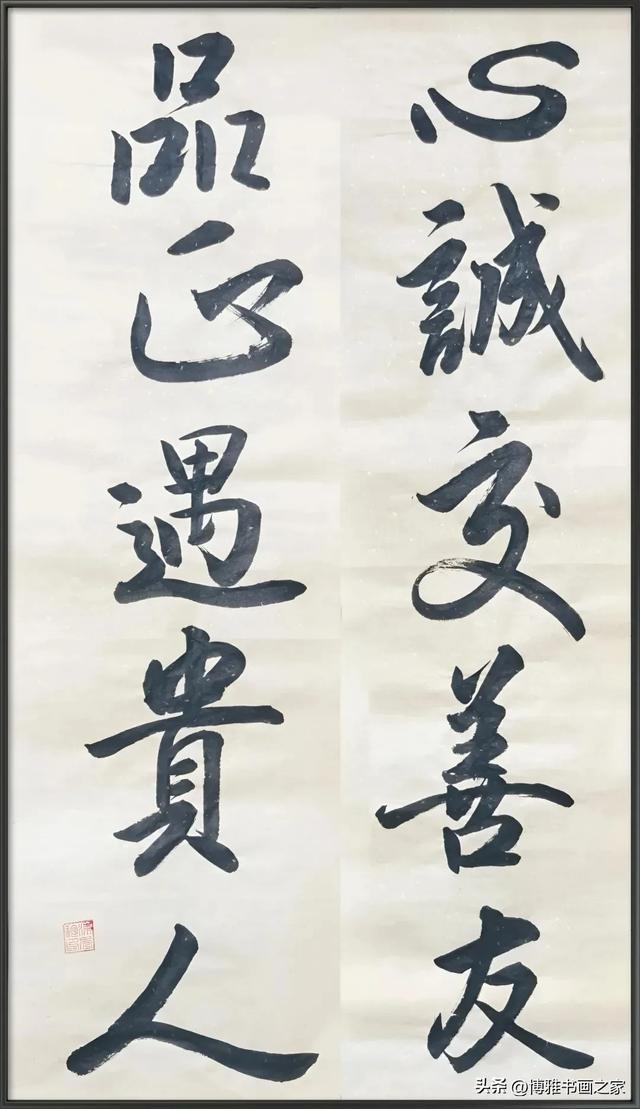 心誠交善友
品正遇貴人
头条 @博雅书画之家